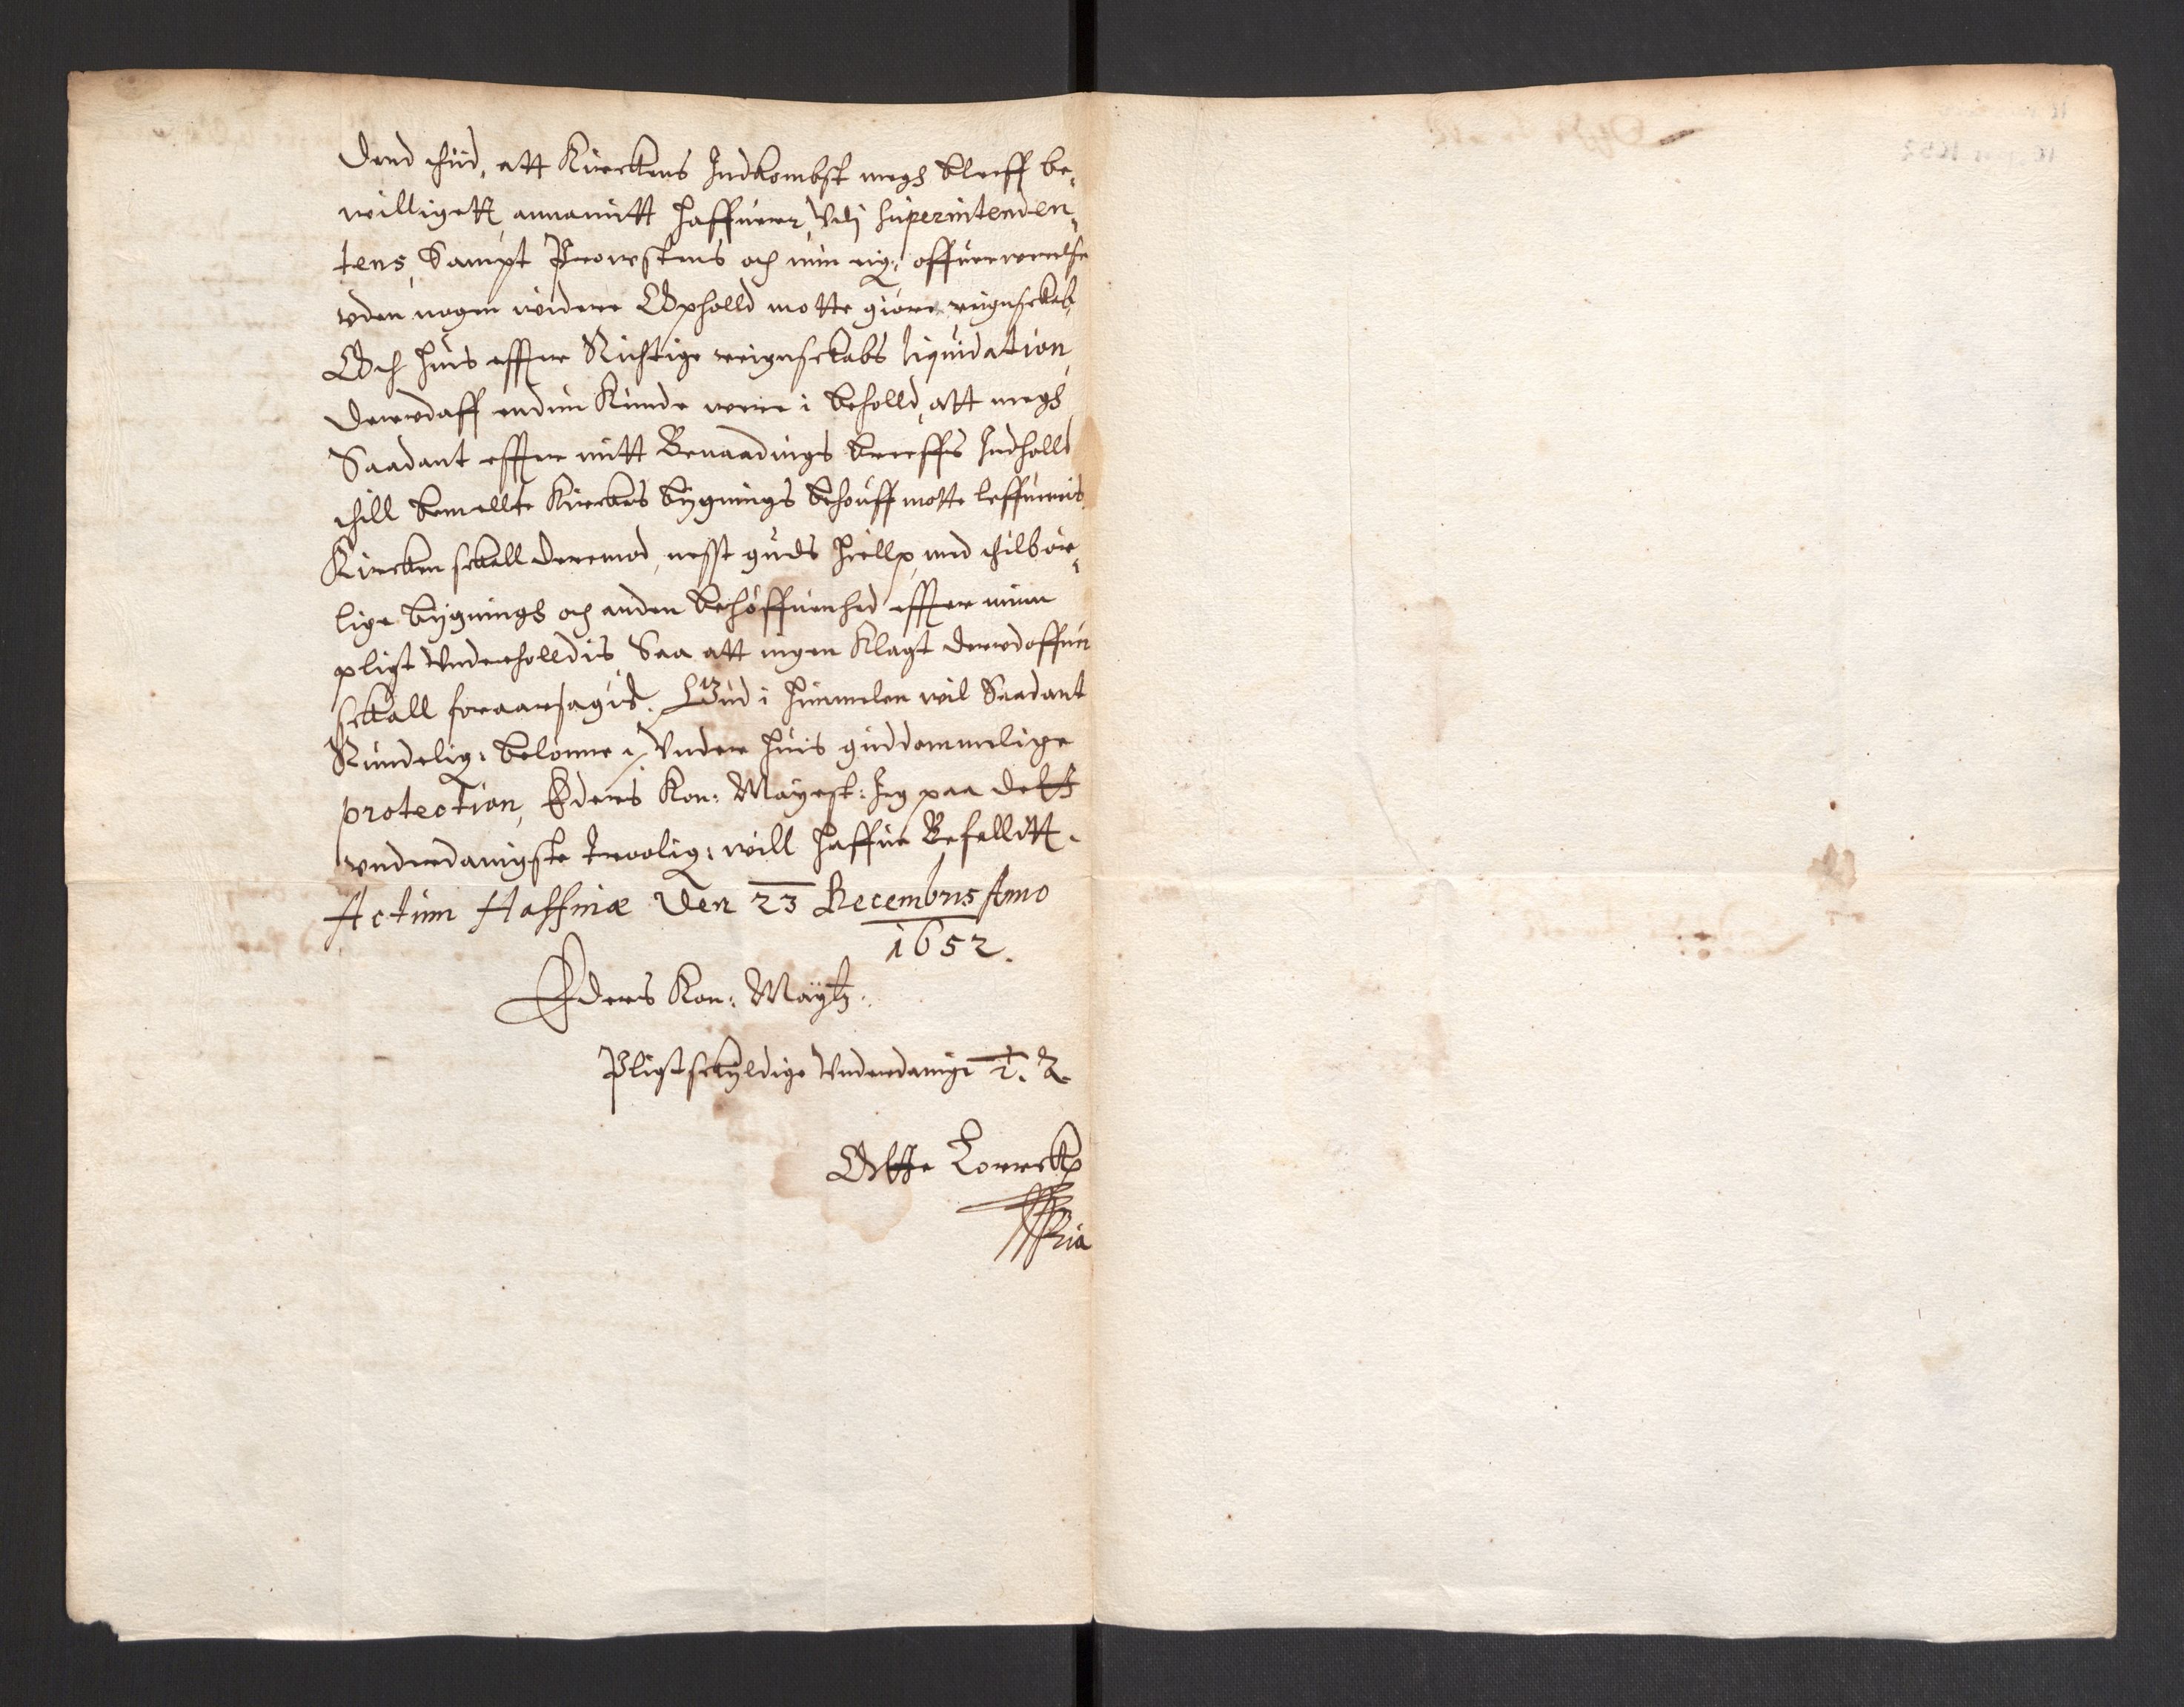 Dend thiid, att Kirckens Indkombst megh bleff be-
willigett, annamitt haffuer, Vdj Superintenden-
tens, Sampt Prowstens och min eig: offuerwerelse
vden nogen widere Ophold motte giöre reignschab,
Och huis effter Richtige reignschabs liquidation,
derudaff endnu Kunde were i beholld, att megh
Saadant effter mitt Benaadings breffs Indholld
thill bemellte Kirckes bygnings behouff motte leffueris.
Kircken schall deremod, nesst guds hiellp, med thilbör-
lige bygningh och anden behöffuenhed effter minn
pligt Vnderholldis, Saa att ingen Klagt derudoffuer
schall foraarsagis. Gud i himmelen wil Saadant
Rundelig: belönne, Vnder huis guddommelige
protection, Eders Kon: Mayest: Jeg paa dett
vnderdanigste troolig: will haffue Befallitt.
Actum Haffniæ Den 23 Decembris Anno
1652.
Eders Kon: Maytz:
Pligtschyldige Vnderdanige t. t.
Otte Lorrck